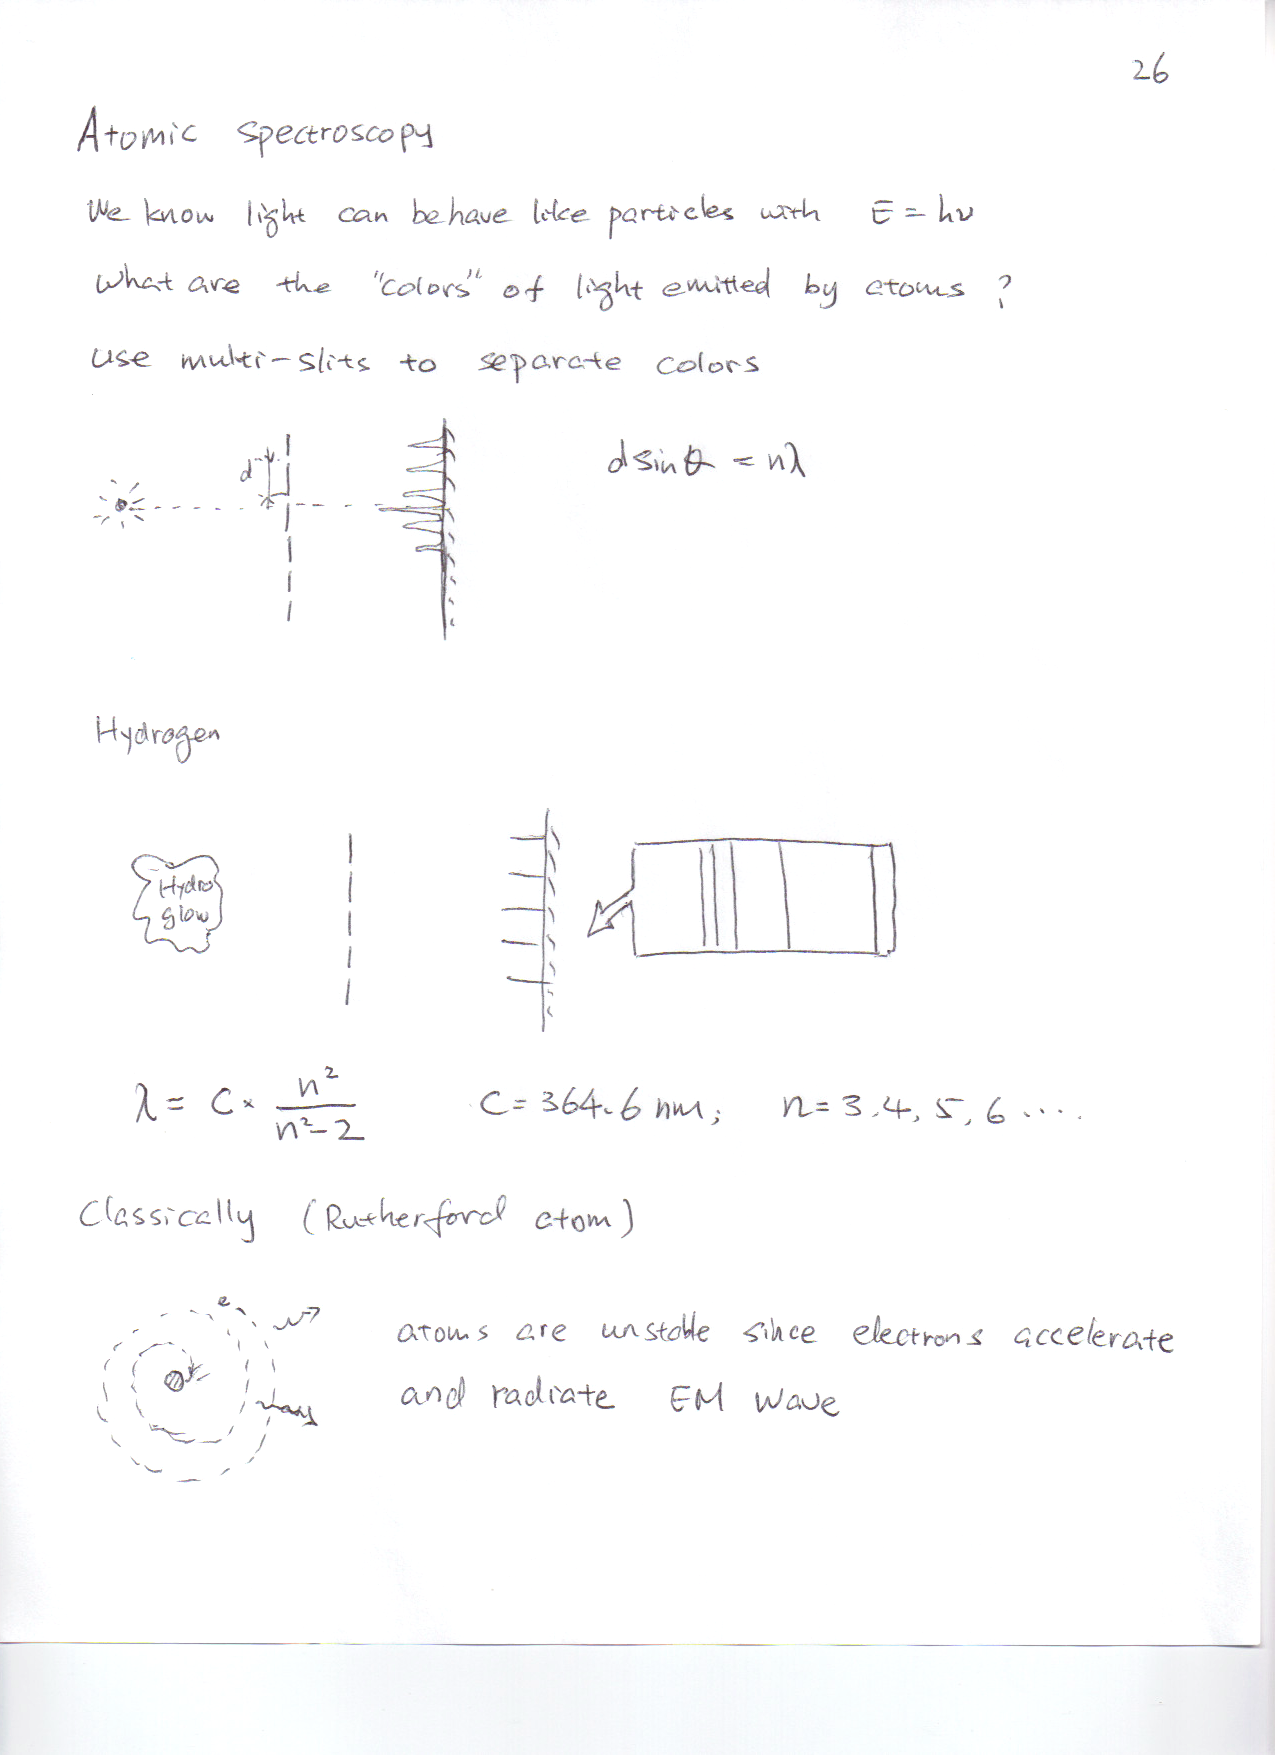 26
Atomic spectroscopy
We know light can behave like particles with E = hν
What are the "colors" of light emitted by atoms ?
Use multi-slits to separate colors
d
d sin θ = nλ
Hydrogen
Hydro
glow
λ = C × n² / n²-2 C = 364.6 nm; n = 3.4, 5, 6 ....
Classically (Rutherford atom)
e
atoms are unstable since electrons accelerate
and radiate EM wave